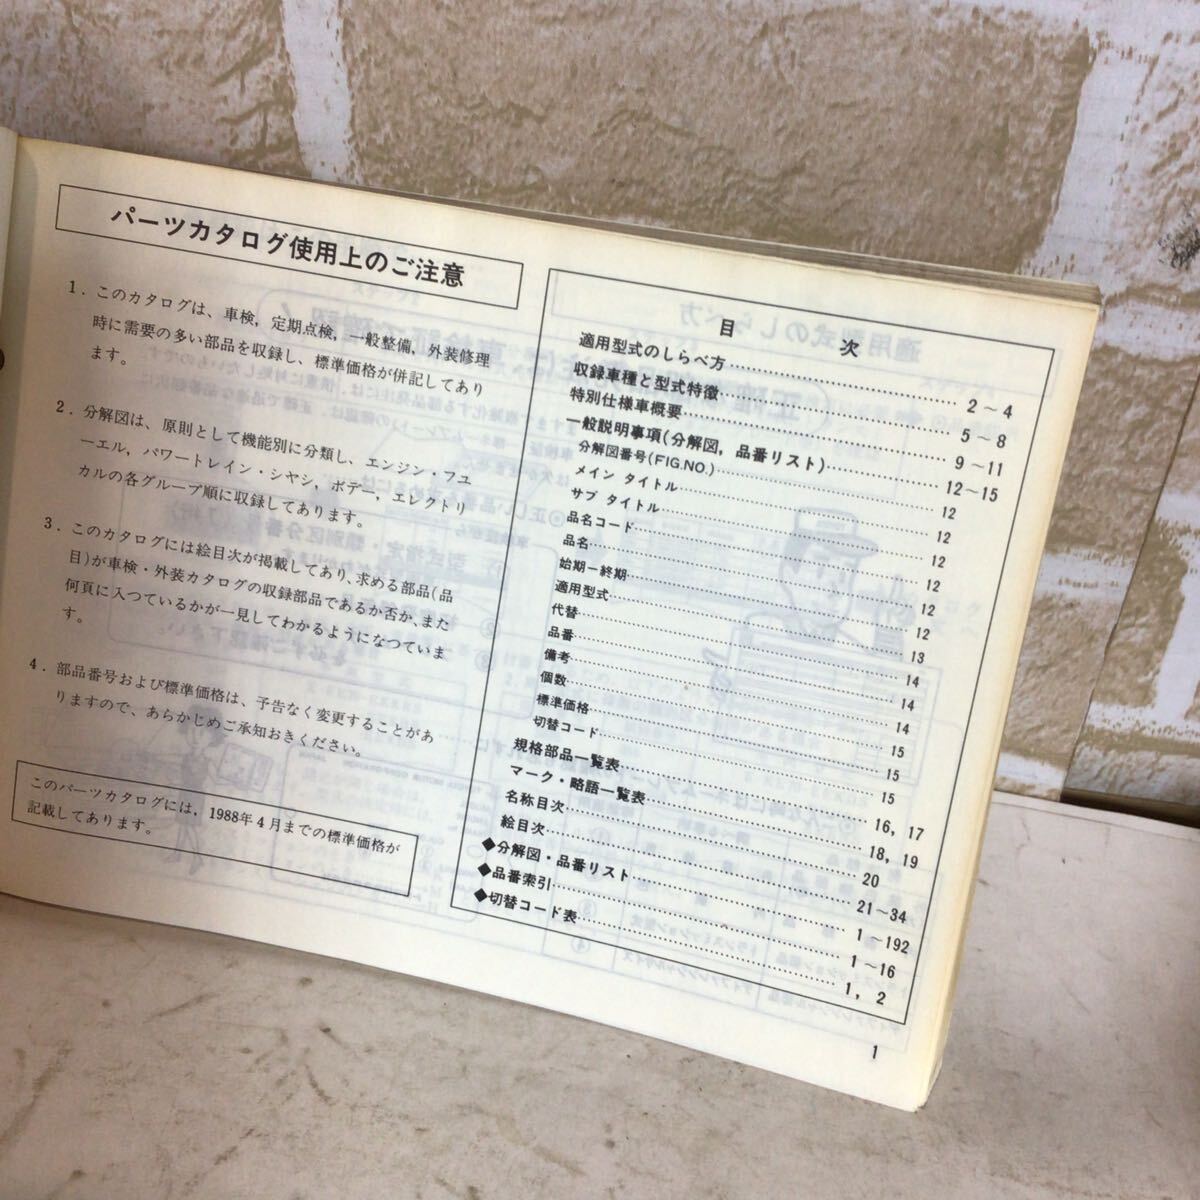 パーツカタログ使用上のご注意
1．このカタログは、車検，定期点検，一般整備，外装修理
時に需要の多い部品を収録し、標準価格が併記してあり
ます。
2．分解図は、原則として機能別に分類し、エンジン・フユ
ーエル，パワートレイン・シヤシ，ボデー，エレクトリ
カルの各グループ順に収録してあります。
3．このカタログには絵目次が掲載してあり、求める部品(品
目)が車検・外装カタログの収録部品であるか否か、また
何頁に入つているかが一見してわかるようになつていま
す。
4．部品番号および標準価格は、予告なく変更することがあ
りますので、あらかじめご承知おきください。
このパーツカタログには，1988年4月までの標準価格が
記載してあります。
目 次
適用型式のしらべ方……2～4
収録車種と型式特徴……5～8
特別仕様車概要……9～11
一般説明事項(分解図，品番リスト)……12～15
分解図番号(FIG.NO.)……12
メイン タイトル……12
サブ タイトル……12
品名コード……12
品名……12
始期－終期……12
適用型式……13
代替……14
品番……14
備考……14
個数……15
標準価格……15
切替コード……15
規格部品一覧表……16，17
マーク・略語一覧表……18，19
名称目次……20
絵目次……21～34
◆分解図・品番リスト……1～192
◆品番索引……1～16
◆切替コード表……1，2
1